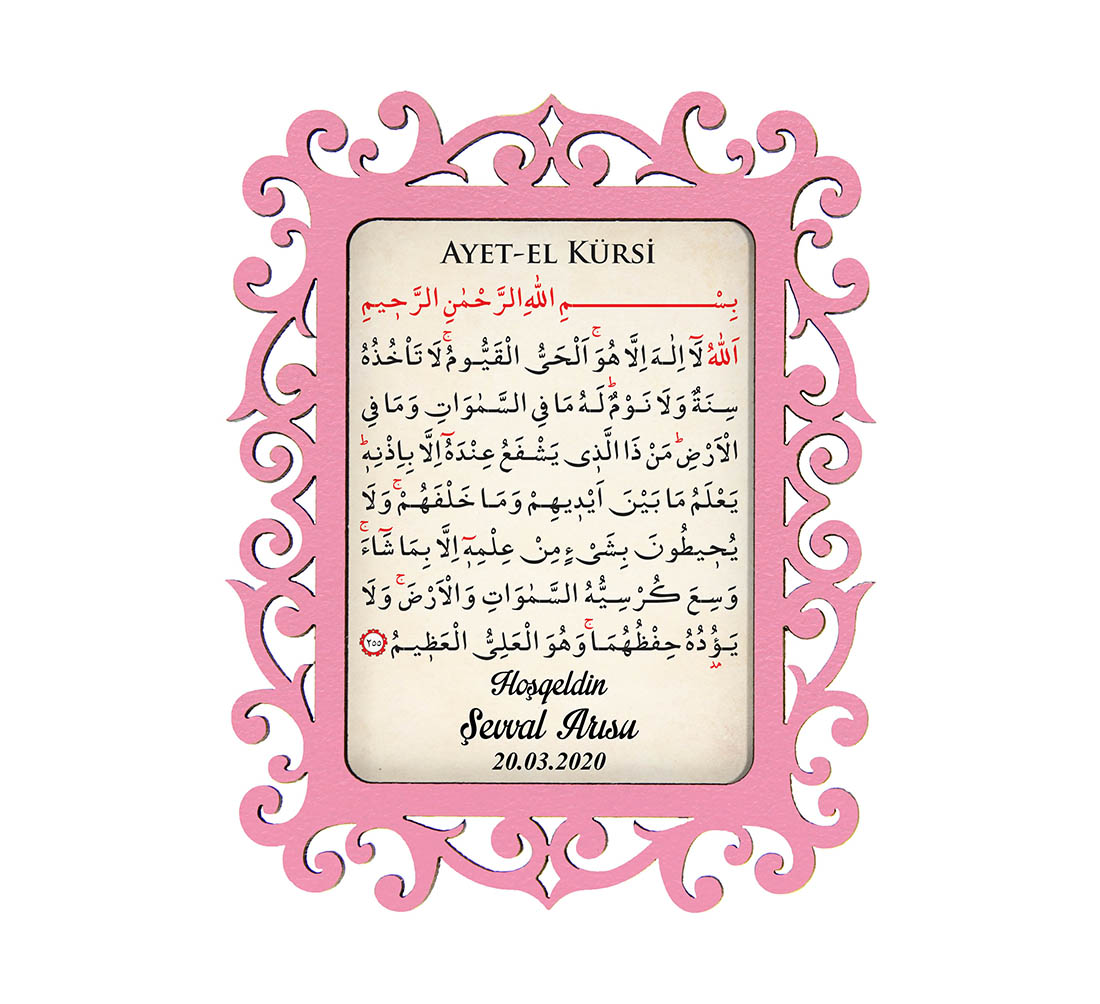 AYET-EL KÜRSİ
بِسْــــــــــــــمِ اللّٰهِ الرَّحْمٰنِ الرَّح۪يمِ
اَللّٰهُ لَٓا اِلٰهَ اِلَّا هُوَۚ اَلْحَىُّ الْقَيُّومُۚ لَا تَأْخُذُهُ
سِنَةٌ وَلَا نَوْمٌۜ لَهُ مَا فِى السَّمٰوَاتِ وَمَا فِى
الْاَرْضِۜ مَنْ ذَا الَّذ۪ى يَشْفَعُ عِنْدَهُٓ اِلَّا بِاِذْنِه۪ۜ
يَعْلَمُ مَا بَيْنَ اَيْد۪يهِمْ وَمَا خَلْفَهُمْۚ وَلَا
يُح۪يطُونَ بِشَىْءٍ مِنْ عِلْمِه۪ٓ اِلَّا بِمَا شَٓاءَۚ
وَسِعَ كُرْسِيُّهُ السَّمٰوَاتِ وَالْاَرْضَۚ وَلَا
يَؤُ۫دُهُ حِفْظُهُمَاۚ وَهُوَ الْعَلِىُّ الْعَظ۪يمُ ٢٥٥
Hoşgeldin
Şevval Arısu
20.03.2020